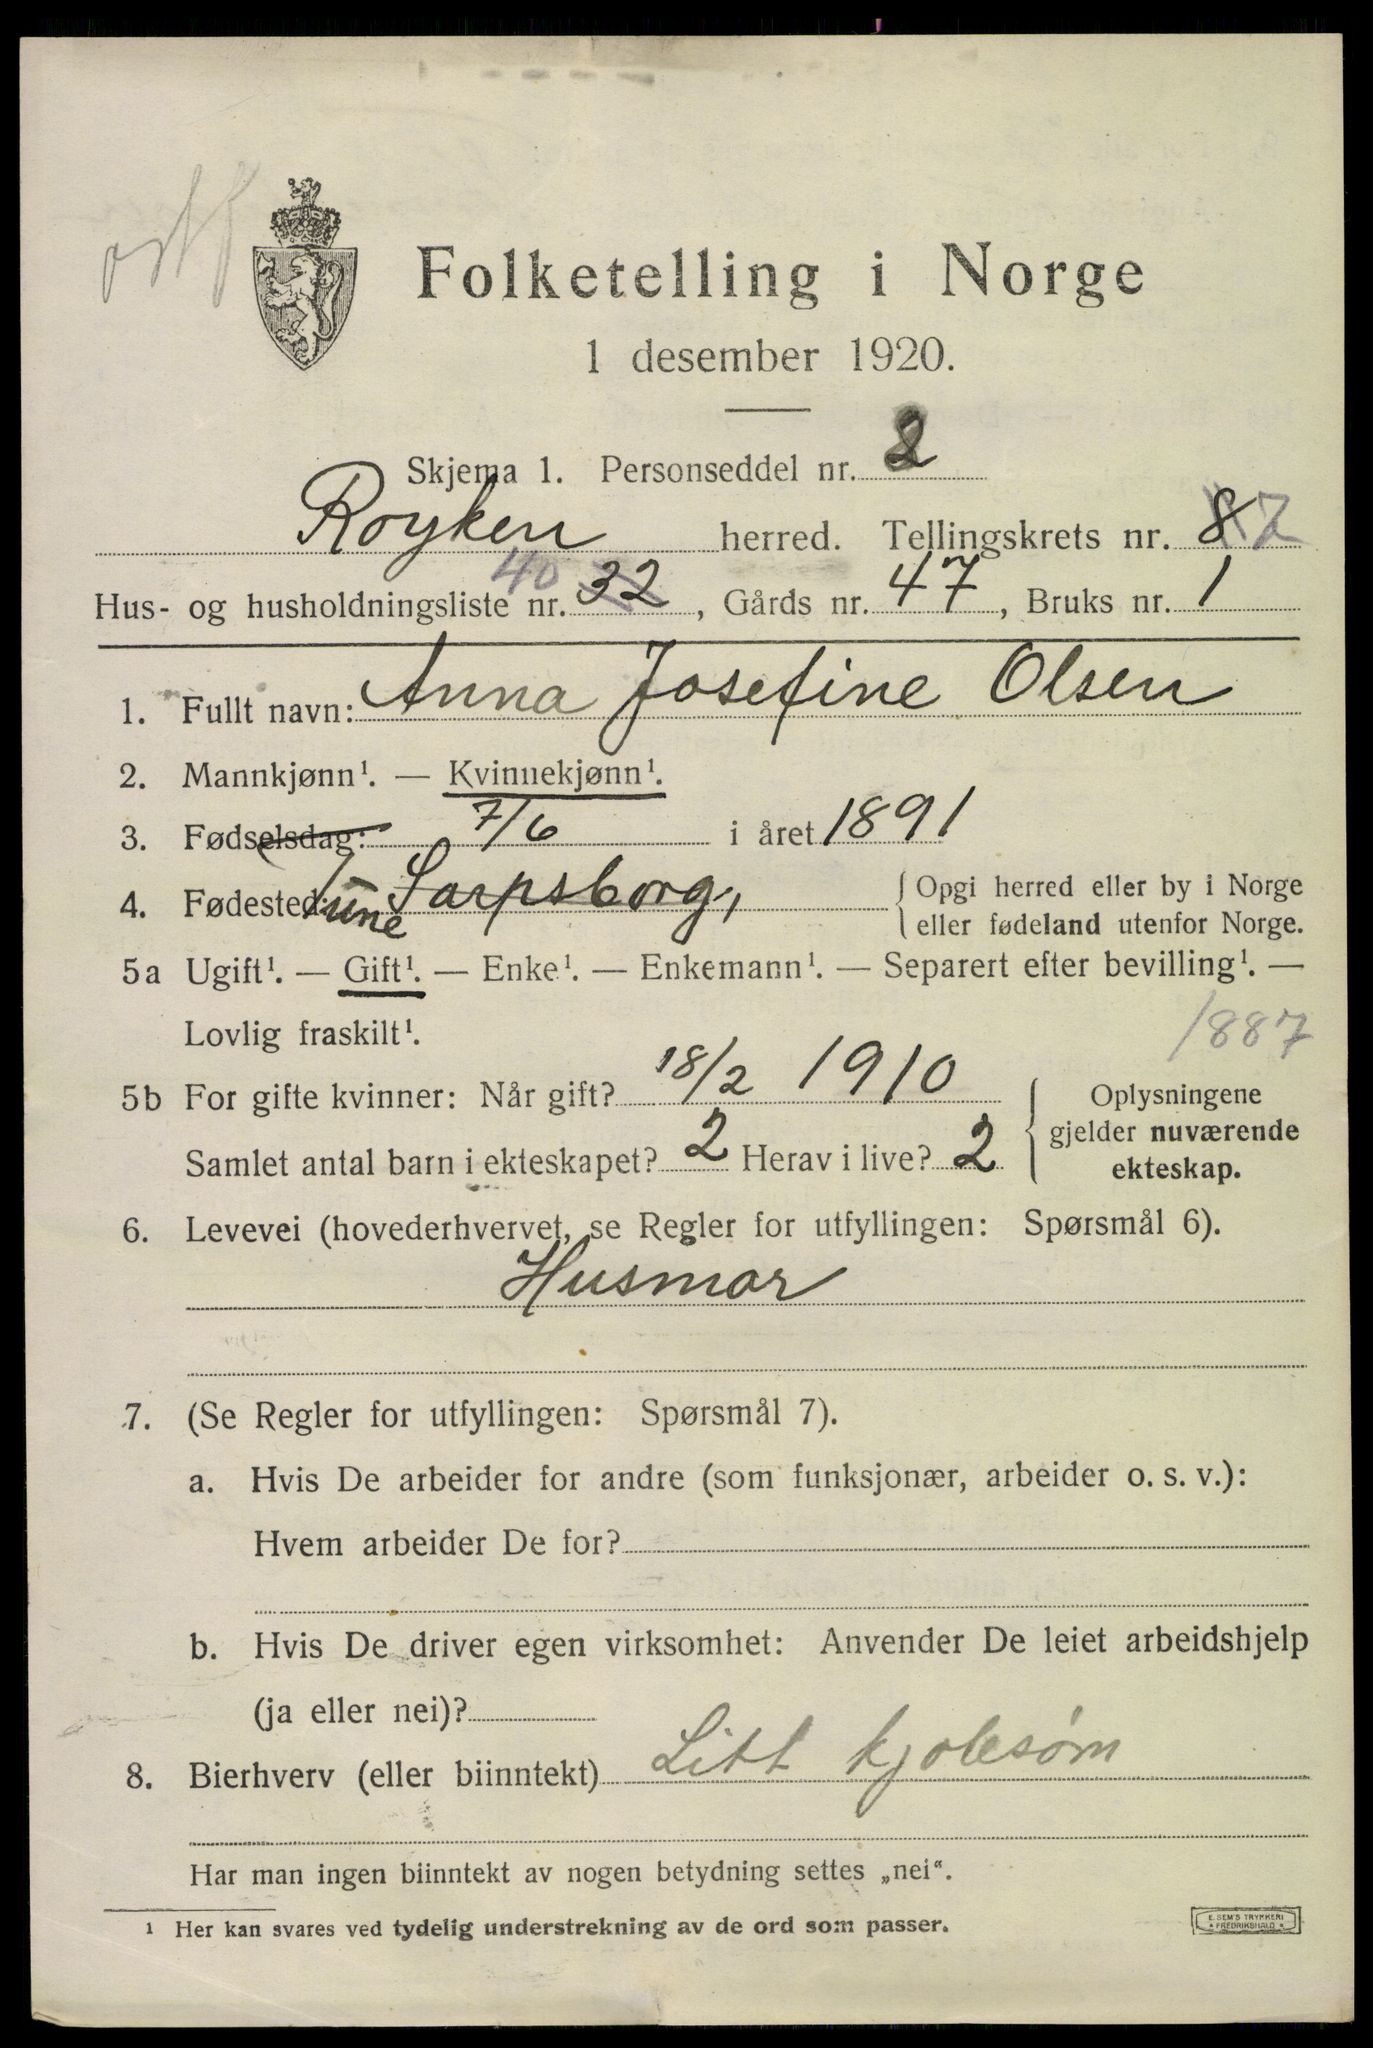 ostf
Folketelling i Norge
1 desember 1920.
Skjema 1. Personseddel nr. 2
Royken herred. Tellingskrets nr. 8 7
Hus- og husholdningsliste nr. 40 32, Gårds nr. 47, Bruks nr. 1
1. Fullt navn: Anna Josefine Olsen
2. Mannkjønn¹. — Kvinnekjønn¹.
3. Fødselsdag: 7/6 i året 1891
4. Fødested: Tune Sarpsborg, { Opgi herred eller by i Norge
eller fødeland utenfor Norge.
5a Ugift¹. — Gift¹. — Enke¹. — Enkemann¹. — Separert efter bevilling¹. —
Lovlig fraskilt¹. 1887
5b For gifte kvinner: Når gift? 18/2 1910 { Oplysningene
gjelder nuværende
Samlet antal barn i ekteskapet? 2 Herav i live? 2 ekteskap.
6. Levevei (hovederhvervet, se Regler for utfyllingen: Spørsmål 6).
Husmor
7. (Se Regler for utfyllingen: Spørsmål 7).
a. Hvis De arbeider for andre (som funksjonær, arbeider o. s. v.):
Hvem arbeider De for?
b. Hvis De driver egen virksomhet: Anvender De leiet arbeidshjelp
(ja eller nei)?
8. Bierhverv (eller biinntekt) Litt kjolesøm
Har man ingen biinntekt av nogen betydning settes „nei“.
¹ Her kan svares ved tydelig understrekning av de ord som passer.
E. SEM'S TRYKKERI
* FREDRIKSHALD *